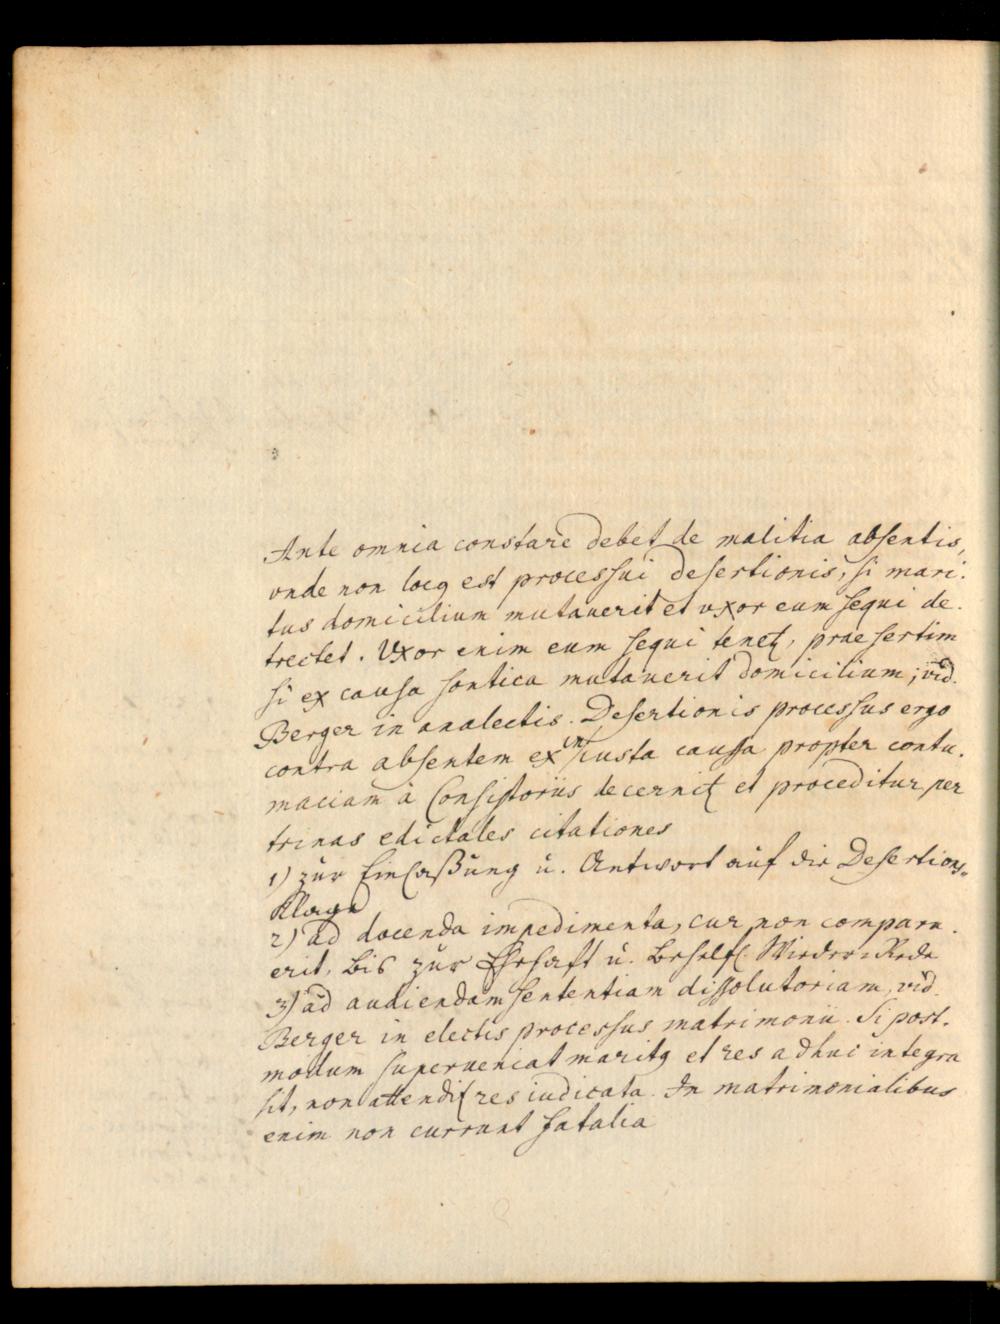 Ante omnia constare debet de malitia absentis,
unde non locq est processui desertionis, si mari-
tus domicilium mutauerit et uxor eum sequi de-
trectet. Uxor enim eum sequi tenetz, praesertim
si ex causa sontica mutauerit domicilium; vid.
Berger in analectis. Desertionis processus ergo
contra absentem ex iniusta caussa propter contu-
maciam à Consistoriis decernitz et proceditur per
trinas edictales citationes
1) zür Einlaßüng ü. Antwort aüf die Desertions-
Klage
2) ad docenda impedimenta, cur non comparu-
erit, bis zür Ehehaft ü. behelfl. Wieder-Rede
3) ad audiendam sententiam dissolutoriam, vid.
Berger in electis processus matrimonii. Si post-
modum superueniat maritq et res adhuc integra
sit, non attenditz res iudicata. In matrimonialibus
enim non currunt fatalia